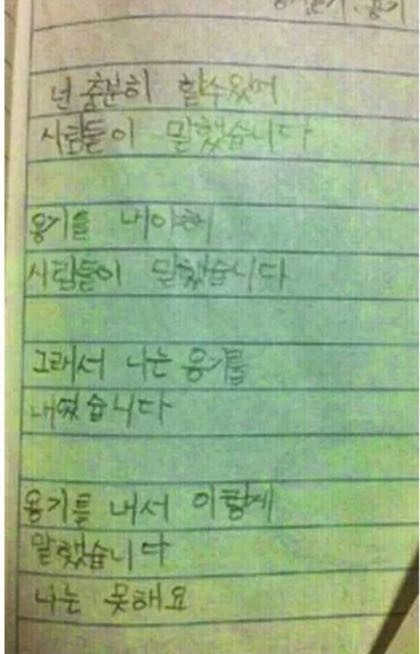 넌 충분히 할수있어
사람들이 말했습니다
용기를 내야해
사람들이 말했습니다
그래서 나는 용기를
내었습니다
용기를 내서 이렇게
말했습니다
나는 못해요